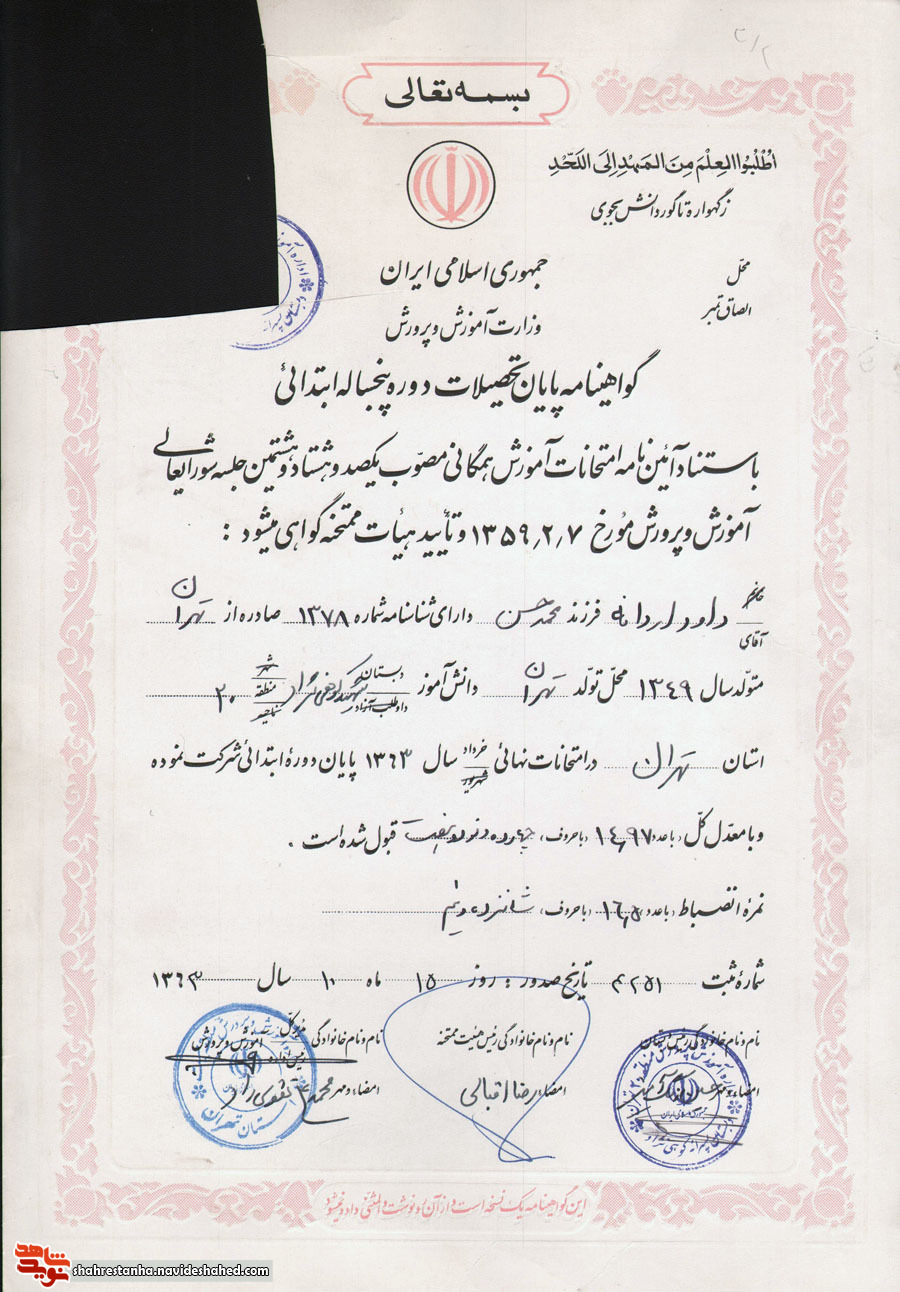 بسمه تعالی
اُطْلُبُوا العِلْمَ مِنَ المَهْدِ اِلَی اللَّحْدِ
زگهواره تا گور دانش بجوی
جمهوری اسلامی ایران
محل
الصاق تمبر
وزارت آموزش و پرورش
گواهینامه پایان تحصیلات دوره پنجساله ابتدائی
باستناد آئین نامه امتحانات آموزش همگانی مصوّب یکصد و هشتاد و هشتمین جلسه شورایعالی
آموزش و پرورش مورخ ۱۳۵۹٫۲٫۷ و تأیید هیأت ممتحنه گواهی میشود :
آقای داود فرزند محمد حسن دارای شناسنامه شماره ۱۳۷۸ صادره از تهران
متولد سال ۱۳۴۹ محل تولد تهران دانش آموز دبستان شهید منطقه ۲۰
استان تهران در امتحانات نهائی خرداد شهریور سال ۱۳۶۳ پایان دوره ابتدائی شرکت نموده
و با معدل کل (باعدد) ۱۴٫۹۷ (باحروف) چهارده و نود و هفت قبول شده است .
نمره انضباط (باعدد) ۱۶٫۵ (باحروف) شانزده و نیم
شماره ثبت تاریخ صدور : روز ۱۵ ماه ۱۰ سال ۱۳۶۳
نام و نام خانوادگی رئیس دبستان نام و نام خانوادگی رئیس هیئت ممتحنه نام و نام خانوادگی
امضاء و مهر امضاء رضا اقبالی امضاء و مهر محمد
استان تهران
این گواهینامه یک نسخه است و از آن رونوشت و المثنی داده نمیشود
نوید شاهد
shahrestanha.navideshahed.com